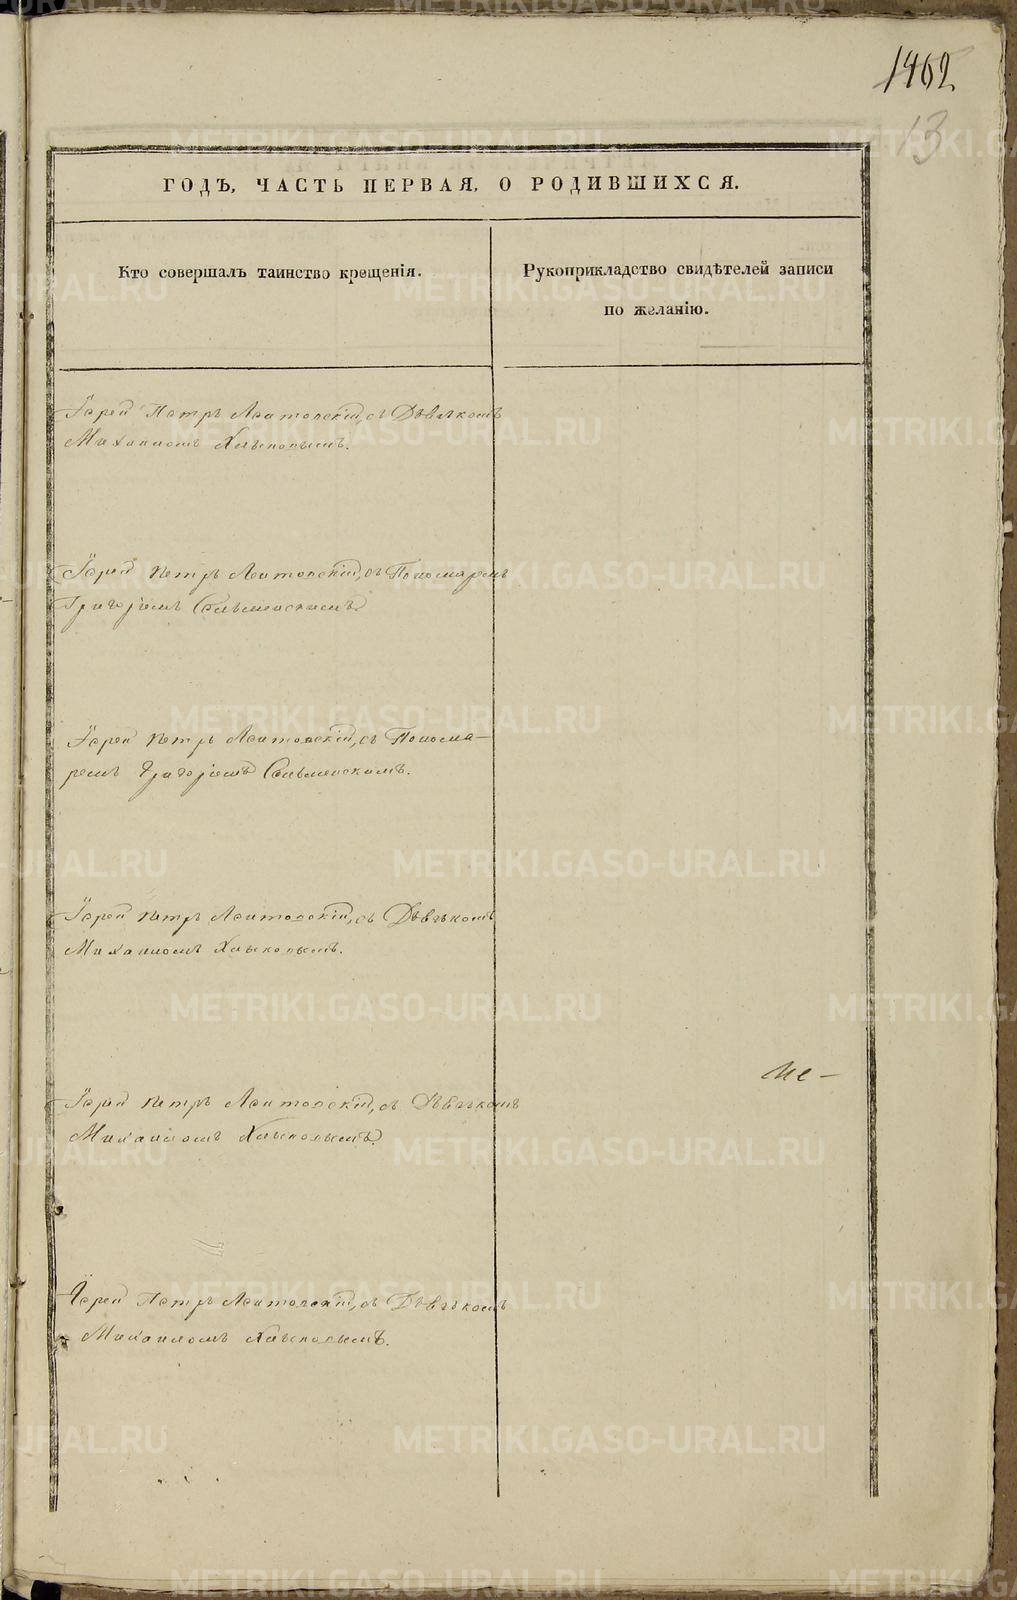 1462
13
ГОДЪ, ЧАСТЬ ПЕРВАЯ, О РОДИВШИХСЯ.
Кто совершалъ таинство крещенія.
Рукоприкладство свидѣтелей записи
по желанію.
Іерей Петръ Лситовскій, съ Дьячкомъ
Михаиломъ Хлыновымъ.
Іерей Петръ Лситовскій, съ Пономаремъ
Григоріемъ Сельменскимъ
Іерей Петръ Лситовскій, съ Понома-
ремъ Григоріемъ Сельменскимъ.
Іерей Петръ Лситовскій, съ Дьячкомъ
Михаиломъ Хлыновымъ.
Іерей Петръ Лситовскій, съ Дьячкомъ
Михаиломъ Хлыновымъ
Іерей Петръ Лситовскій, съ Дьячкомъ
Михаиломъ Хлыновымъ.
METRIKI.GASO-URAL.RU